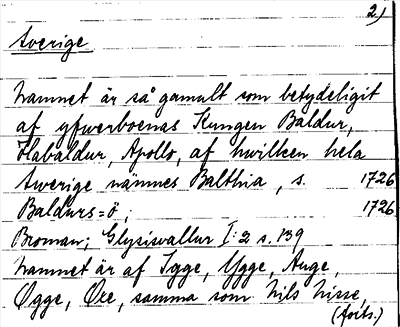 2)
Sverige
Namnet är så gamult som betydeligit
af yfwerboenas Kungen Baldur,
Habaldur, Apollo, af hwilken hela
Swerige nämnes Balthia, s. 1726
Baldurs=ö; 1726
Broman; Glysisvallur I:2 s. 139
Namnet är af Igge, Ygge, Auge,
Ogge, Øre, samma som Nils Nisse,
(forts.)